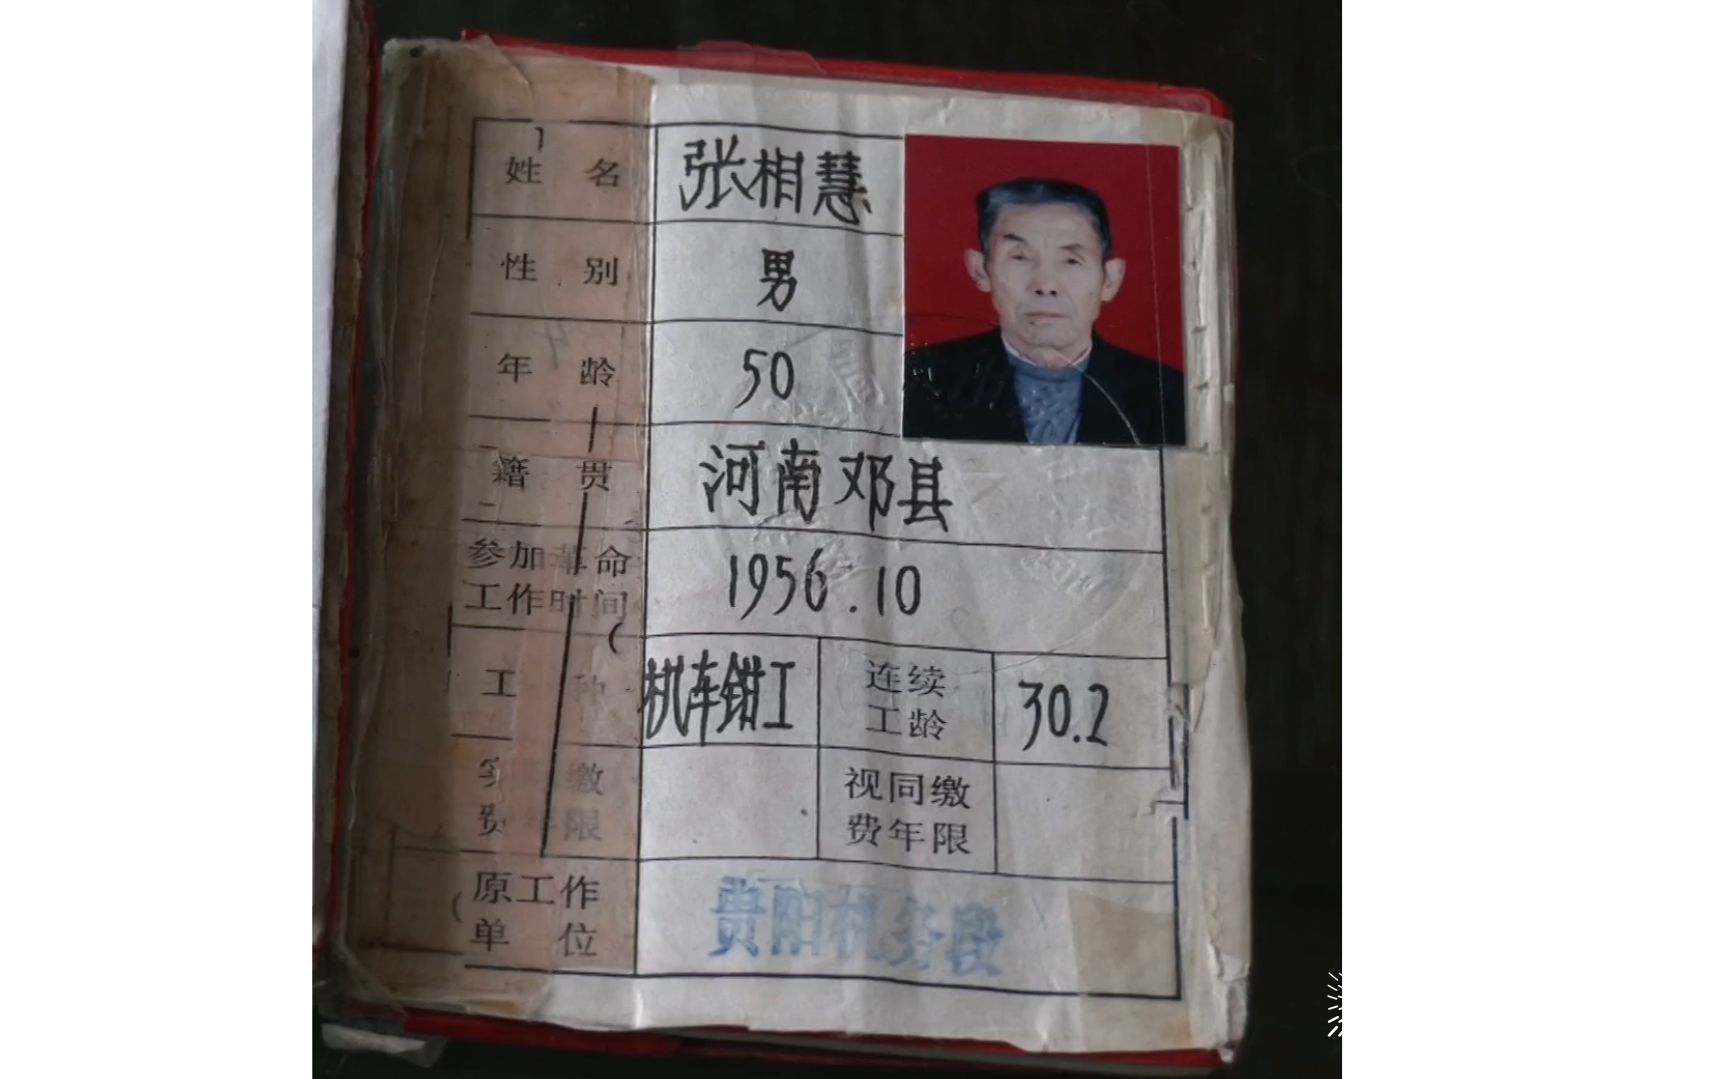 姓 名 张相慧
性 别 男
年 龄 50
籍 贯 河南邓县
参加革命
工作时间 1956.10
工 种 机车钳工 连续
工龄 30.2
缴 视同缴
费年限 费年限
原工作
单 位 贵阳机务段